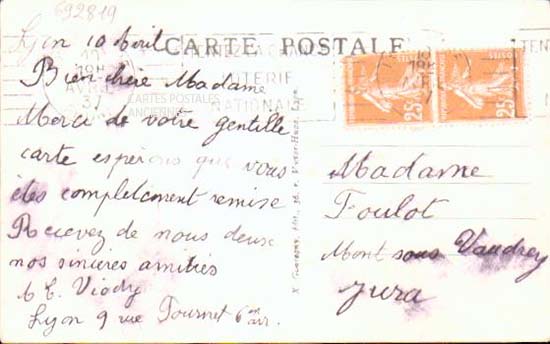 692819
Lyon 10 Avril
CARTE POSTALE
Bien chère Madame
Merci de votre gentille
carte espérons que vous
êtes complètement remise
Recevez de nous deux
nos sincères amitiés
Lyon 9 rue 6em arr.
18H
AVRIL
37
LOTERIE
NATIONALE
CARTES POSTALES
ANCIENNES
25c
25c
POSTES
Madame
Foulot
Mont sous Vaudrey
Jura